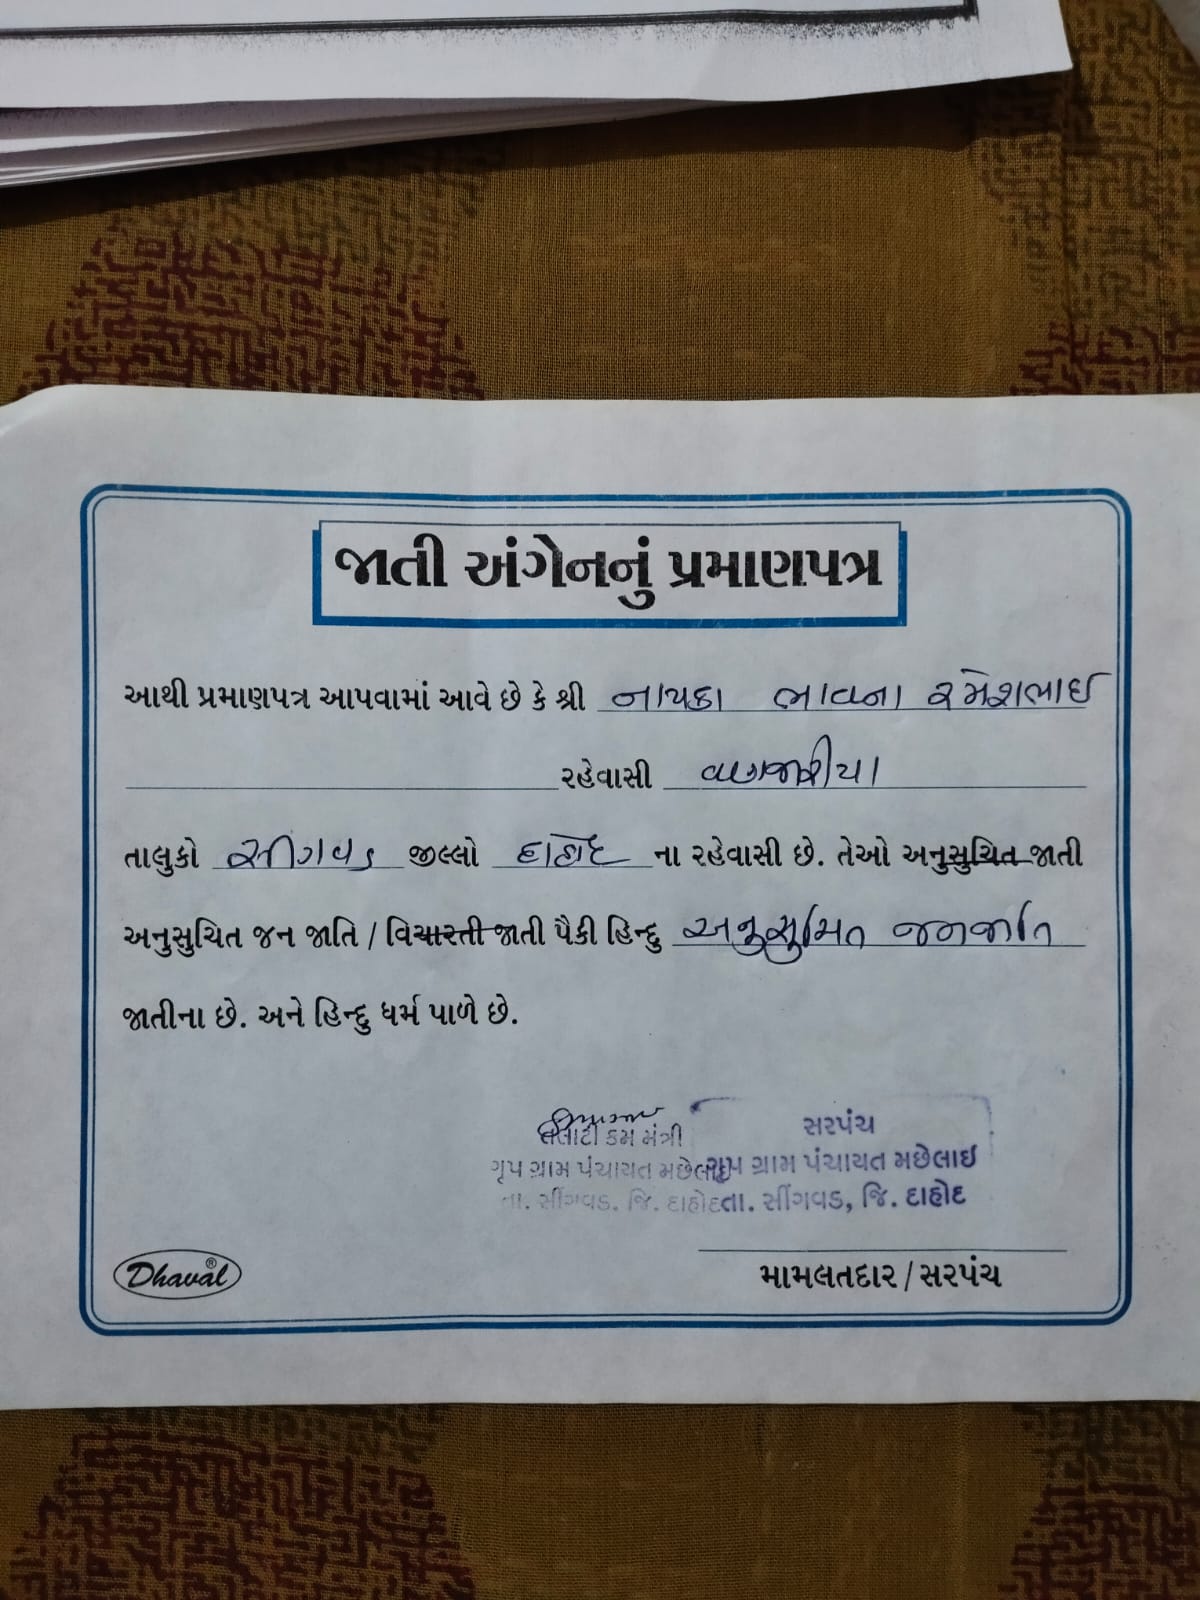 જાતી અંગેનનું પ્રમાણપત્ર
આથી પ્રમાણપત્ર આપવામાં આવે છે કે શ્રી નાયકા ભાવના રમેશભાઈ
રહેવાસી વણજારીયા
તાલુકો સીંગવડ જીલ્લો દાહોદ ના રહેવાસી છે. તેઓ અનુસુચિત જાતી
અનુસુચિત જન જાતિ / વિચારતી જાતી પૈકી હિન્દુ અનુસુચિત જનજાતિ
જાતીના છે. અને હિન્દુ ધર્મ પાળે છે.
તલાટી કમ મંત્રી
ગૃપ ગ્રામ પંચાયત મછેલાઈ
તા. સીંગવડ. જિ. દાહોદ
સરપંચ
ગૃપ ગ્રામ પંચાયત મછેલાઇ
તા. સીંગવડ, જિ. દાહોદ
Dhaval ®
મામલતદાર / સરપંચ